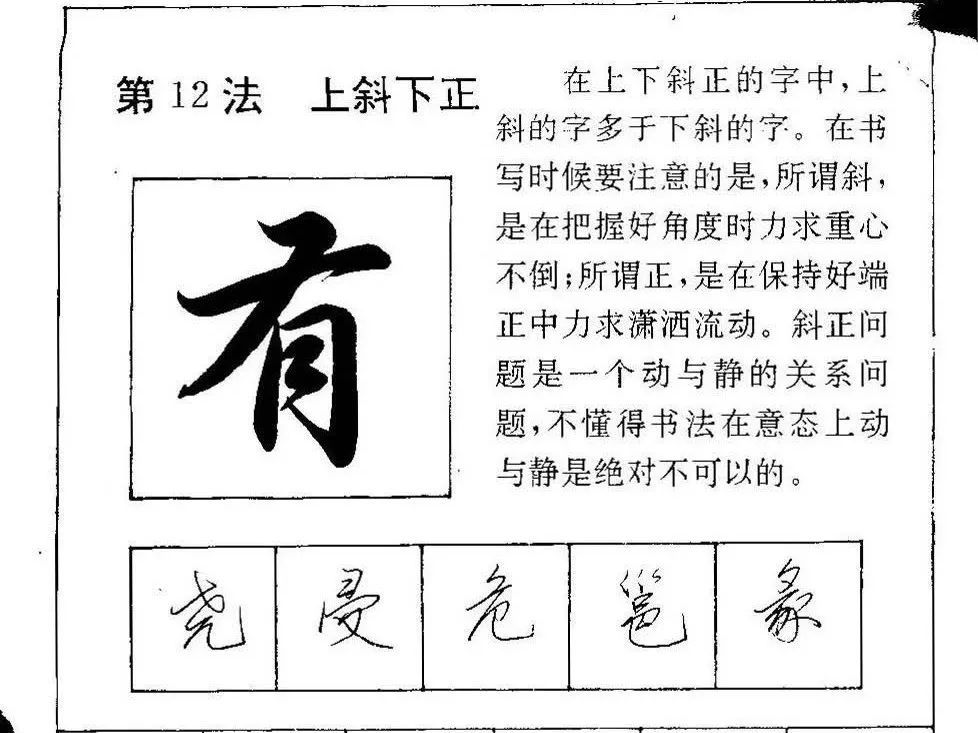 第12法 上斜下正
在上下斜正的字中,上
斜的字多于下斜的字。在书
写时候要注意的是,所谓斜,
是在把握好角度时力求重心
不倒;所谓正,是在保持好端
正中力求潇洒流动。斜正问
题是一个动与静的关系问
题,不懂得书法在意态上动
与静是绝对不可以的。
有
尧 危 邕 彖